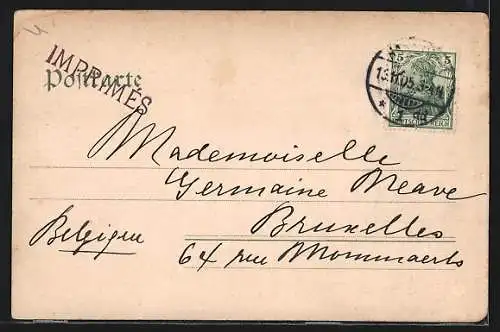 IMPRIMÉS
Postkarte
5 5
Mademoiselle
Germaine Meave
Bruxelles
Belgique
64 rue Mommaerts